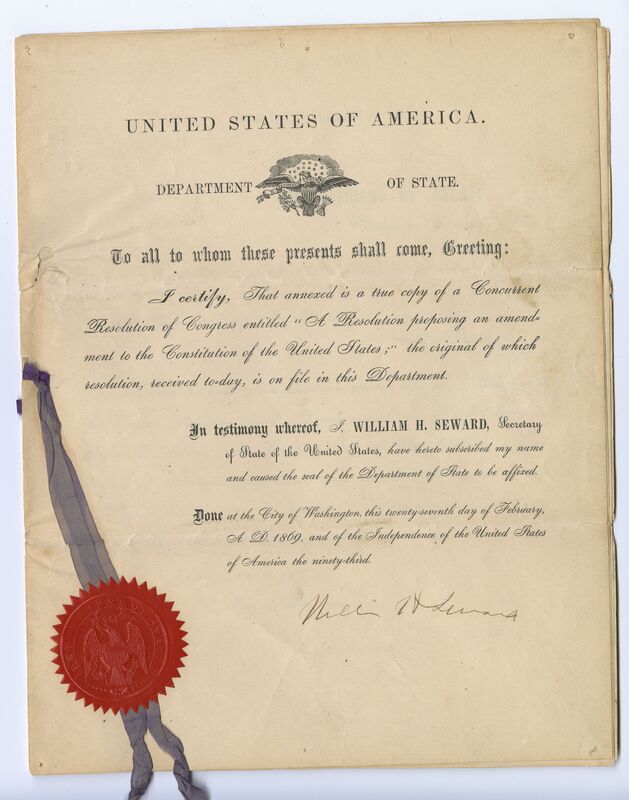 UNITED STATES OF AMERICA.
DEPARTMENT OF STATE.
To all to whom these presents shall come, Greeting:
I certify, That annexed is a true copy of a Concurrent
Resolution of Congress entitled "A Resolution proposing an amend-
ment to the Constitution of the United States;" the original of which
resolution, received to-day, is on file in this Department.
In testimony whereof, I, WILLIAM H. SEWARD, Secretary
of State of the United States, have hereto subscribed my name
and caused the seal of the Department of State to be affixed.
Done at the City of Washington, this twenty-seventh day of February,
A. D. 1869, and of the Independence of the United States
of America the ninety-third.
William H Seward